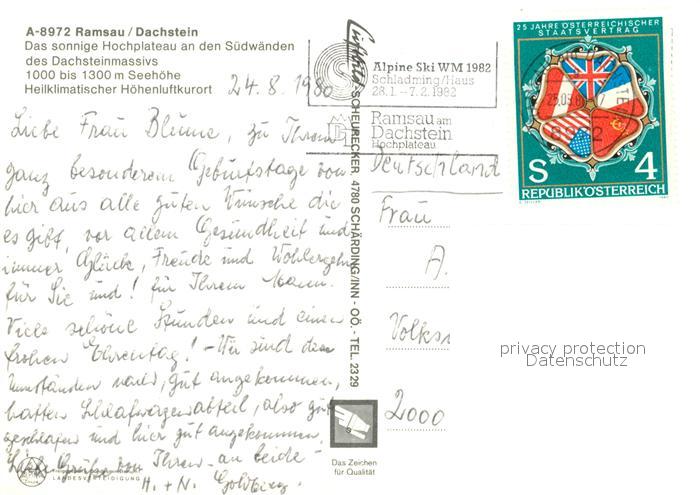 A-8972 Ramsau / Dachstein
Das sonnige Hochplateau an den Südwänden
des Dachsteinmassivs
1000 bis 1300 m Seehöhe
Heilklimatischer Höhenluftkurort
24.8.1980
Liebe Frau Blume, zu Ihrem
ganz besonderem Geburtstage von
hier aus alle guten Wünsche die
es gibt, vor allem Gesundheit und
immer Glück, Freude und Wohlergehn
für Sie und! für Ihrem Mann.
Viele schöne Stunden und einen
frohen Ehrentag! - Wir sind den
Umständen nach, gut angekommen,
hatten Schlafwagenabteil, also gut
geschlafen und hier gut angekommen.
Liebe Grüße von Ihren - an beide -
H. + N. Goldberg.
LANDESVERTEIDIGUNG
SCHEURECKER, 4780 SCHÄRDING/INN - OÖ. - TEL. 23 29
Das Zeichen
für Qualität
Alpine Ski WM 1982
Schladming/Haus
28.1. - 7.2. 1982
Ramsau am
Dachstein
Hochplateau
25 JAHRE ÖSTERREICHISCHER
STAATSVERTRAG
S 4
REPUBLIK ÖSTERREICH
Deutschland
Frau
A.
Volks
2000
privacy protection
Datenschutz